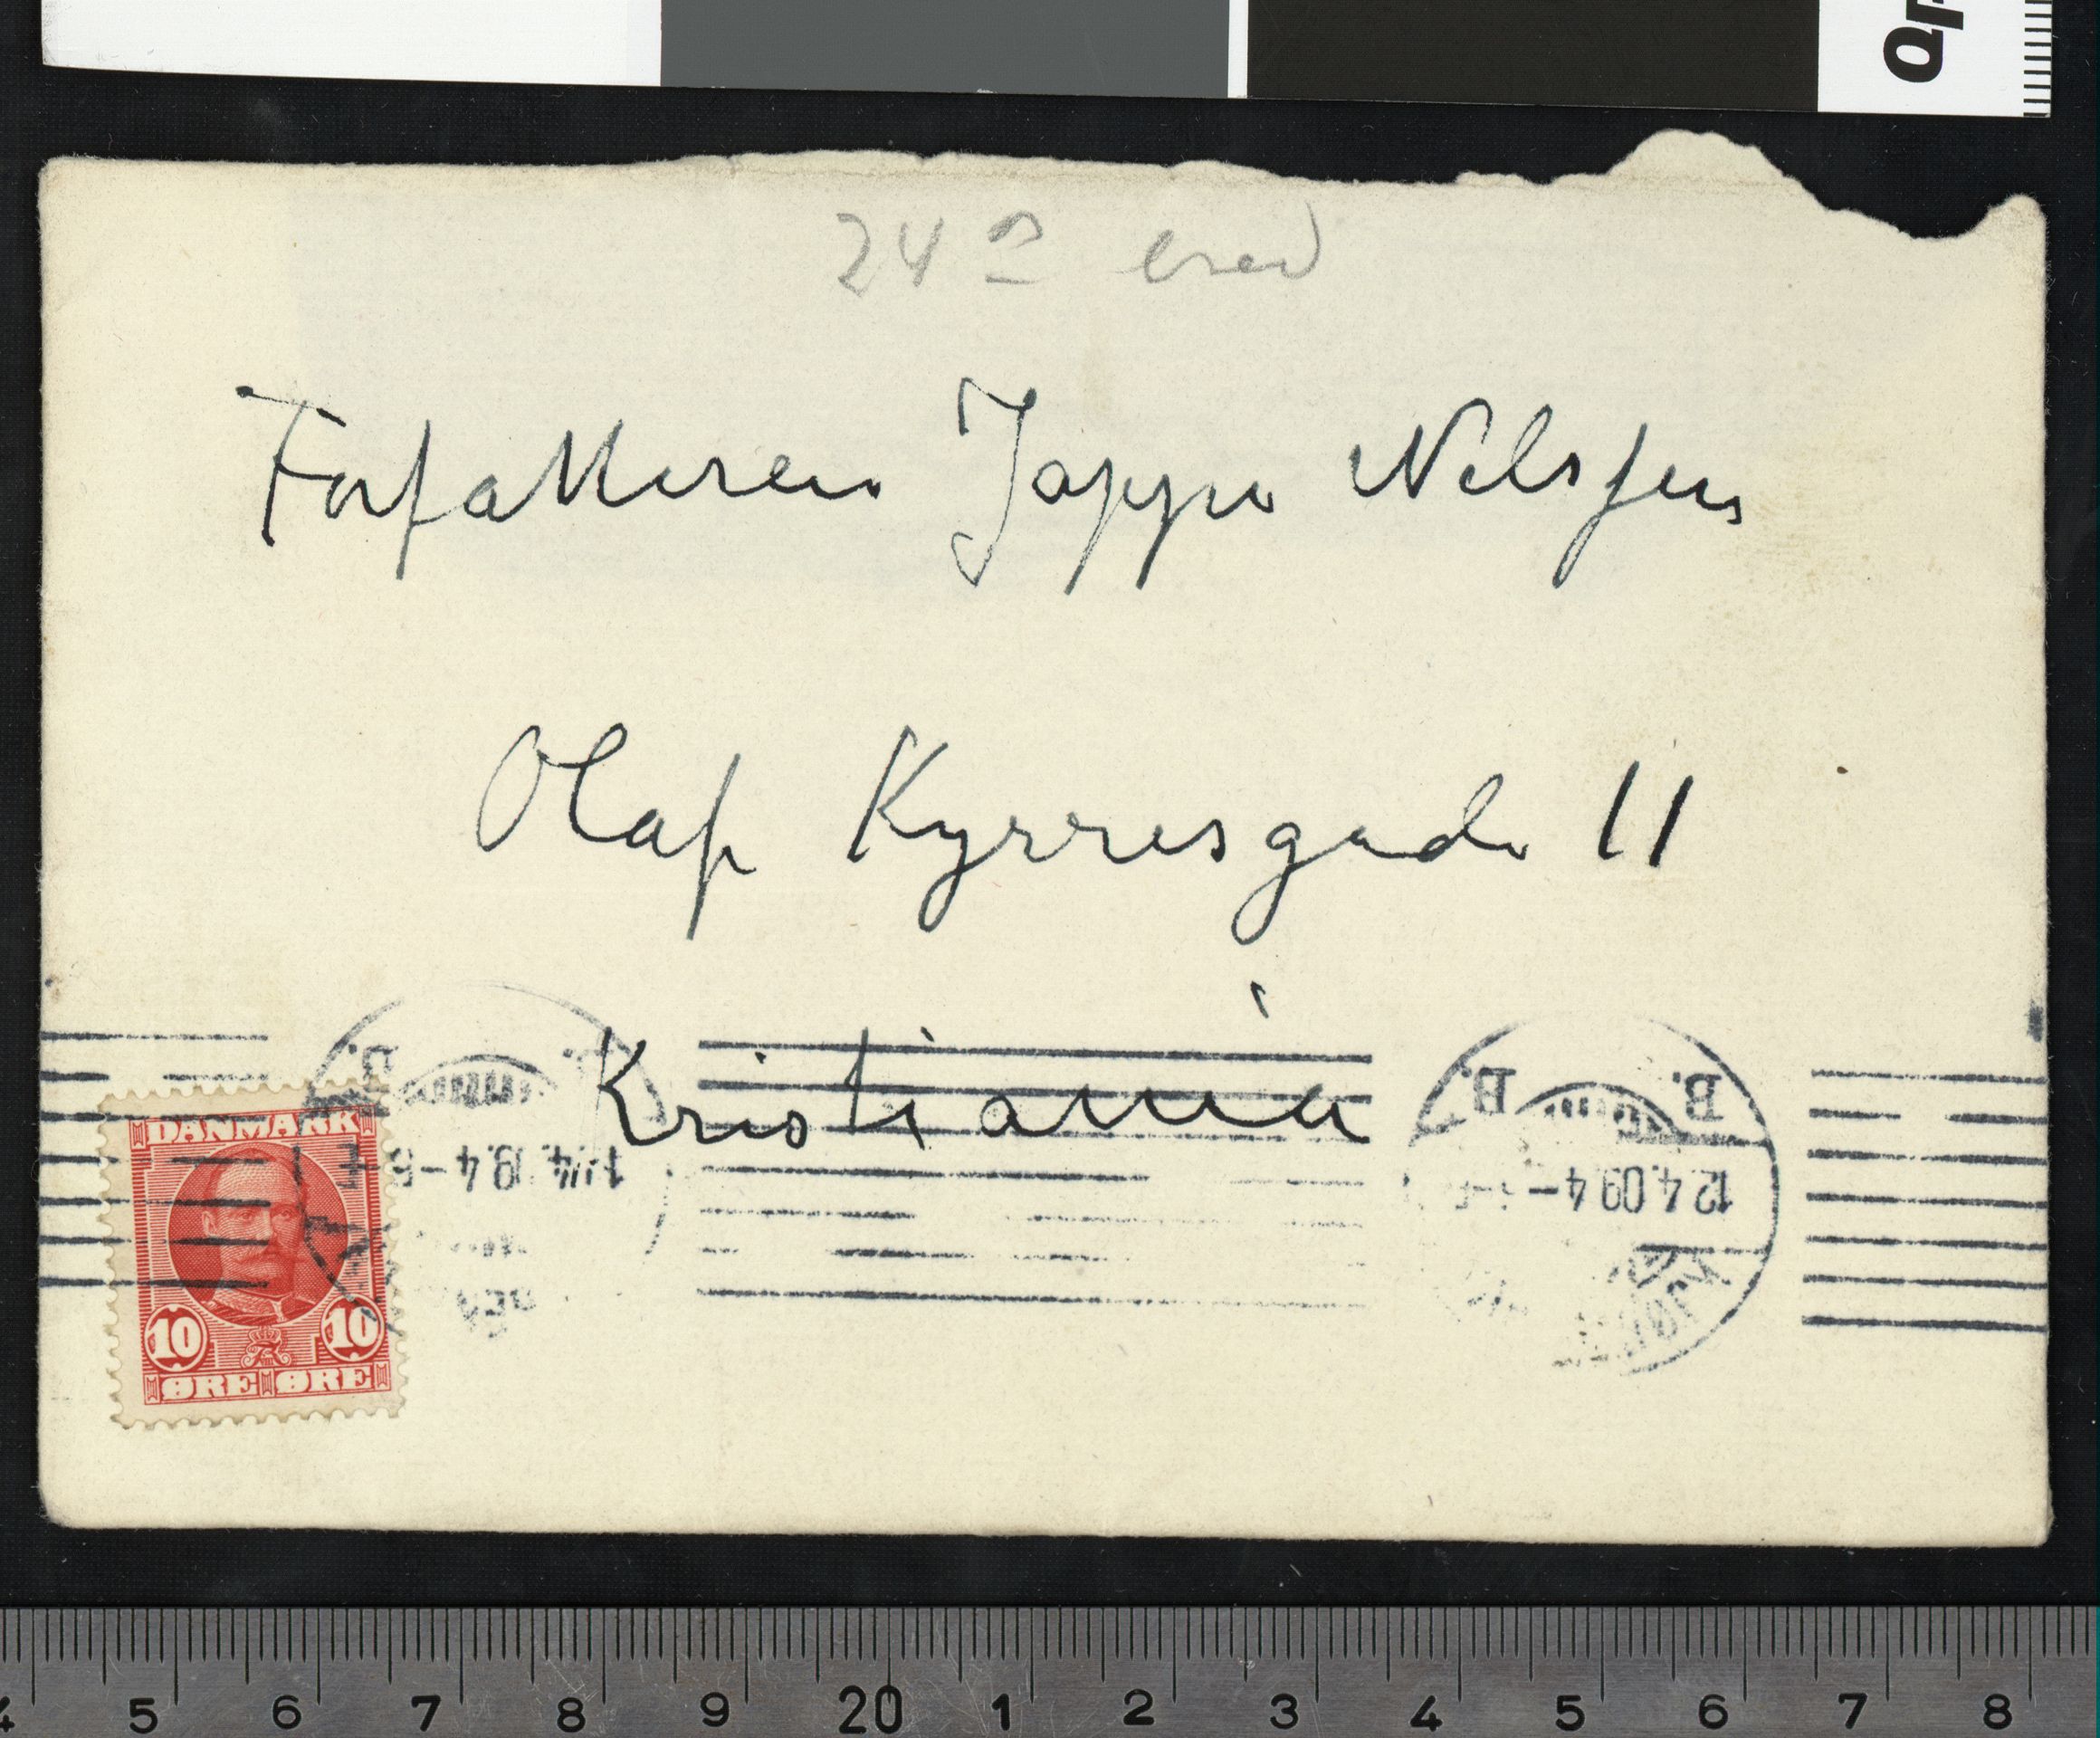 24
Forfatteren Jappe Nilssen
Olaf Kyrresgade 11
Kristiania
B. B.
12.4.09.4-
DANMARK
10 10
ØRE ØRE
4 5 6 7 8 9 20 1 2 3 4 5 6 7 8